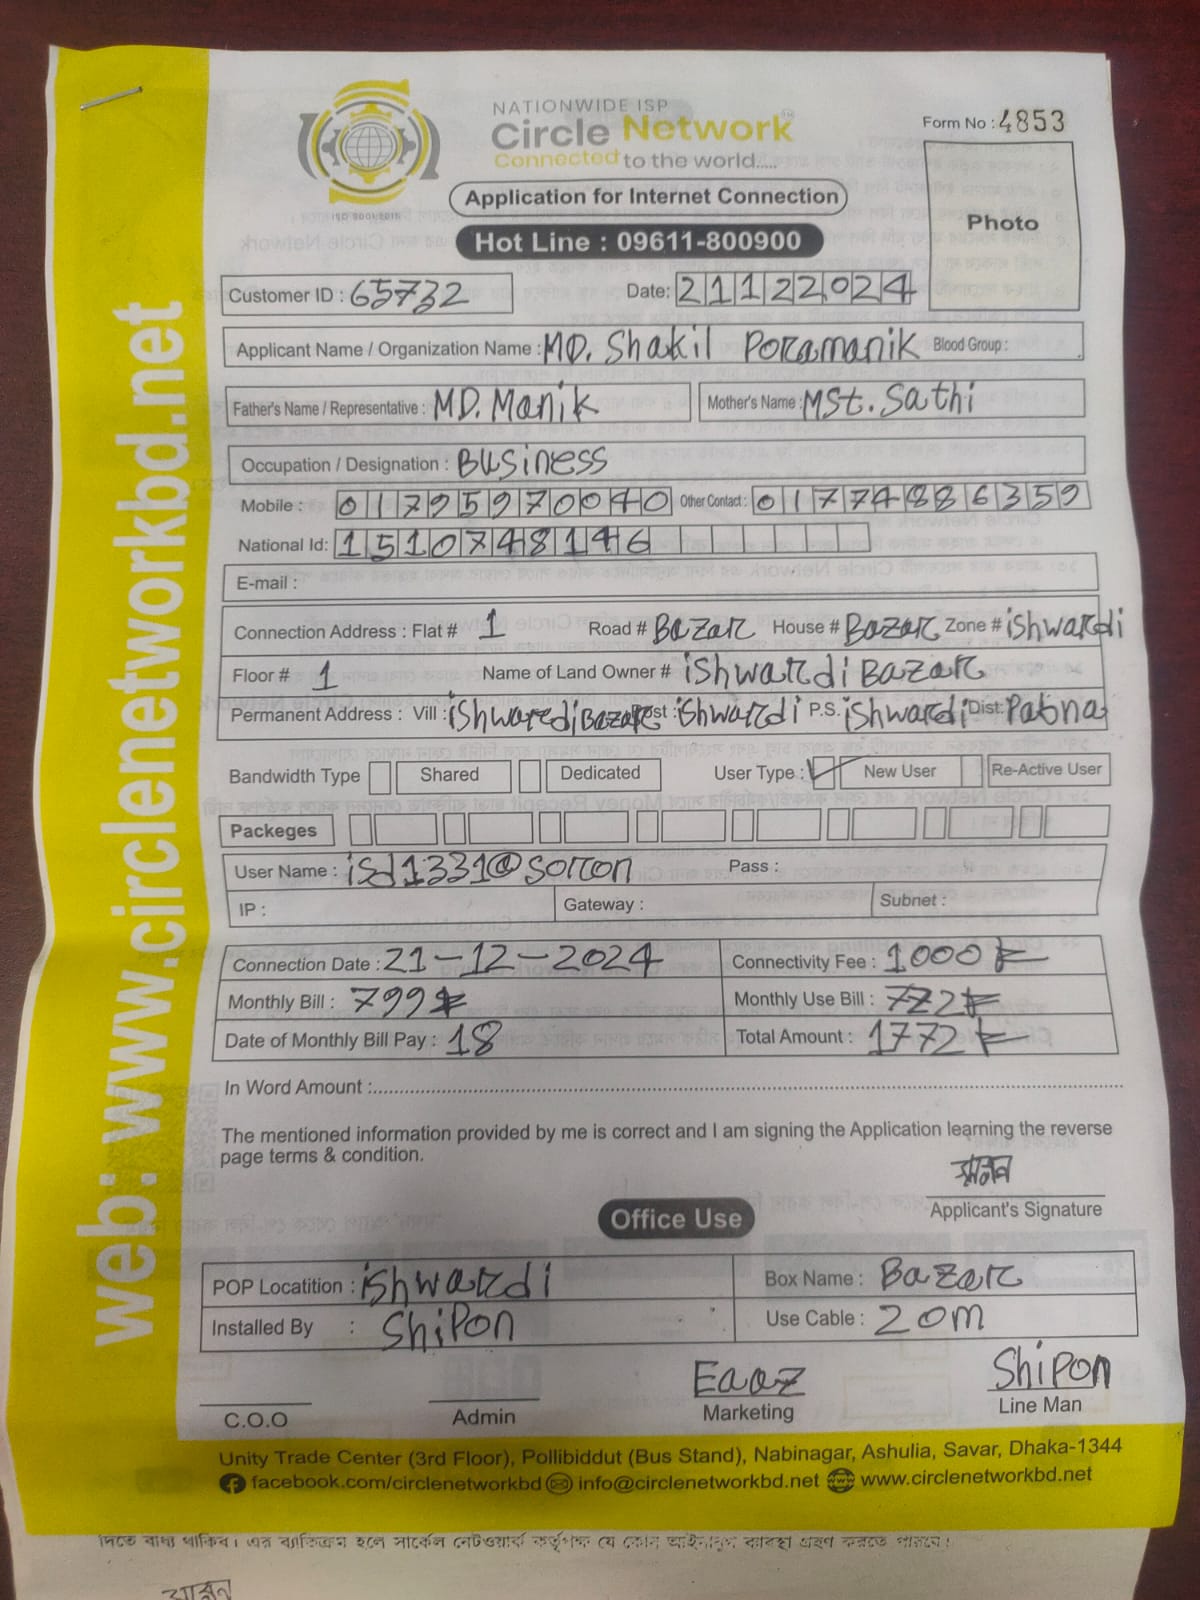 NATIONWIDE ISP
Circle Network
Connected to the world.....
ISO 9001:2015
Form No : 4853
Photo
Application for Internet Connection
Hot Line : 09611-800900
Customer ID : 65732 Date: 21122024
Applicant Name / Organization Name : MD. Shakil Poramanik Blood Group :
Father's Name / Representative : MD. Manik Mother's Name : MSt. Sathi
Occupation / Designation : Business
Mobile : 01795970040 Other Contact : 01774886359
National Id: 1510748146
E-mail :
Connection Address : Flat # 1 Road # Bazar House # Bazar Zone # ishwardi
Floor # 1 Name of Land Owner # ishwardi Bazar
Permanent Address : Vill : ishwardi Bazar Post : ishwardi P.S. ishwardi Dist: Pabna
Bandwidth Type Shared Dedicated User Type : New User Re-Active User
Packeges
User Name : isd1331@sorron Pass :
IP : Gateway : Subnet :
Connection Date : 21-12-2024 Connectivity Fee : 1000
Monthly Bill : 799 Monthly Use Bill : 772
Date of Monthly Bill Pay : 18 Total Amount : 1772
In Word Amount :
The mentioned information provided by me is correct and I am signing the Application learning the reverse
page terms & condition.
Applicant's Signature
Office Use
POP Locatition : ishwardi Box Name : Bazar
Installed By : Shipon Use Cable : 20m
Eaaz Shipon
C.O.O Admin Marketing Line Man
Unity Trade Center (3rd Floor), Pollibiddut (Bus Stand), Nabinagar, Ashulia, Savar, Dhaka-1344
facebook.com/circlenetworkbd info@circlenetworkbd.net www.circlenetworkbd.net
web: www.circlenetworkbd.net
দিতে বাধ্য থাকিব। এর ব্যতিক্রম হলে সার্কেল নেটওয়ার্ক কর্তৃপক্ষ যে কোন আইনানুগ ব্যবস্থা গ্রহণ করতে পারবে।